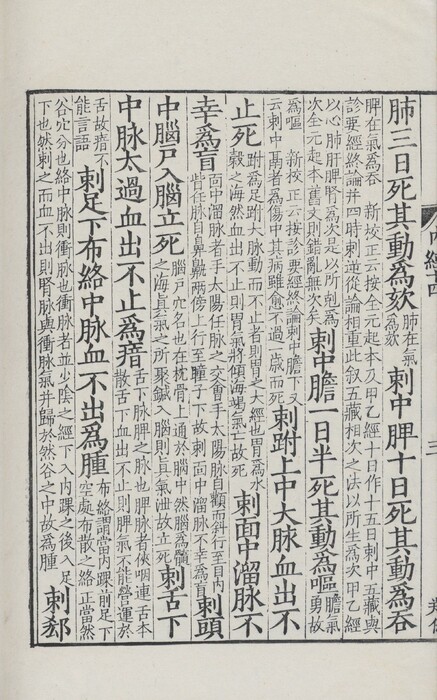 內經四
三
肺三日死其動爲欬肺在氣爲欬刺中脾十日死其動爲吞
脾在氣爲吞 新校正云按全元起本及甲乙經日作十五日刺中五藏與
診要經終論并四時刺逆從論相重此叙五藏相次之法以所生爲次甲乙經
以心肺肝脾腎爲次是以所剋爲次全元起本舊文則錯亂無次矣刺中膽一日半死其動爲嘔膽氣勇故
爲嘔 新校正云按診要經終論刺中膽下又云刺中鬲者爲傷中其病雖愈不過一歲而死刺跗上中大脉血出不
止死跗爲足跗大脉動而不止者則胃之大經也胃爲水穀之海然血出不止則胃氣將傾海竭氣亡故死刺面中溜脉不
幸爲盲面中溜脉者手太陽任脉之交會手太陽脉自顴而斜行至目內眥任脉自鼻鼽兩傍上行至瞳子下故刺面中溜脉不幸爲盲刺頭
中腦户入腦立死腦户穴名也在枕骨上通於腦中然腦爲髓之海真氣之所聚鍼入腦則真氣泄故立死刺舌下
中脉太過血出不止爲瘖舌下脉脾之脉也脾脉者俠咽連舌本散舌下血出不止則脾氣不能營運於
舌故瘖不能言語刺足下布絡中脉血不出爲腫布絡謂當內踝前足下空處布散之絡正當然
谷穴分也絡中脉則衝脉也衝脉者並少陰之經下入內踝之後入足下也然刺之而血不出則腎脉與衝脉氣并歸於然谷之中故爲腫刺郄